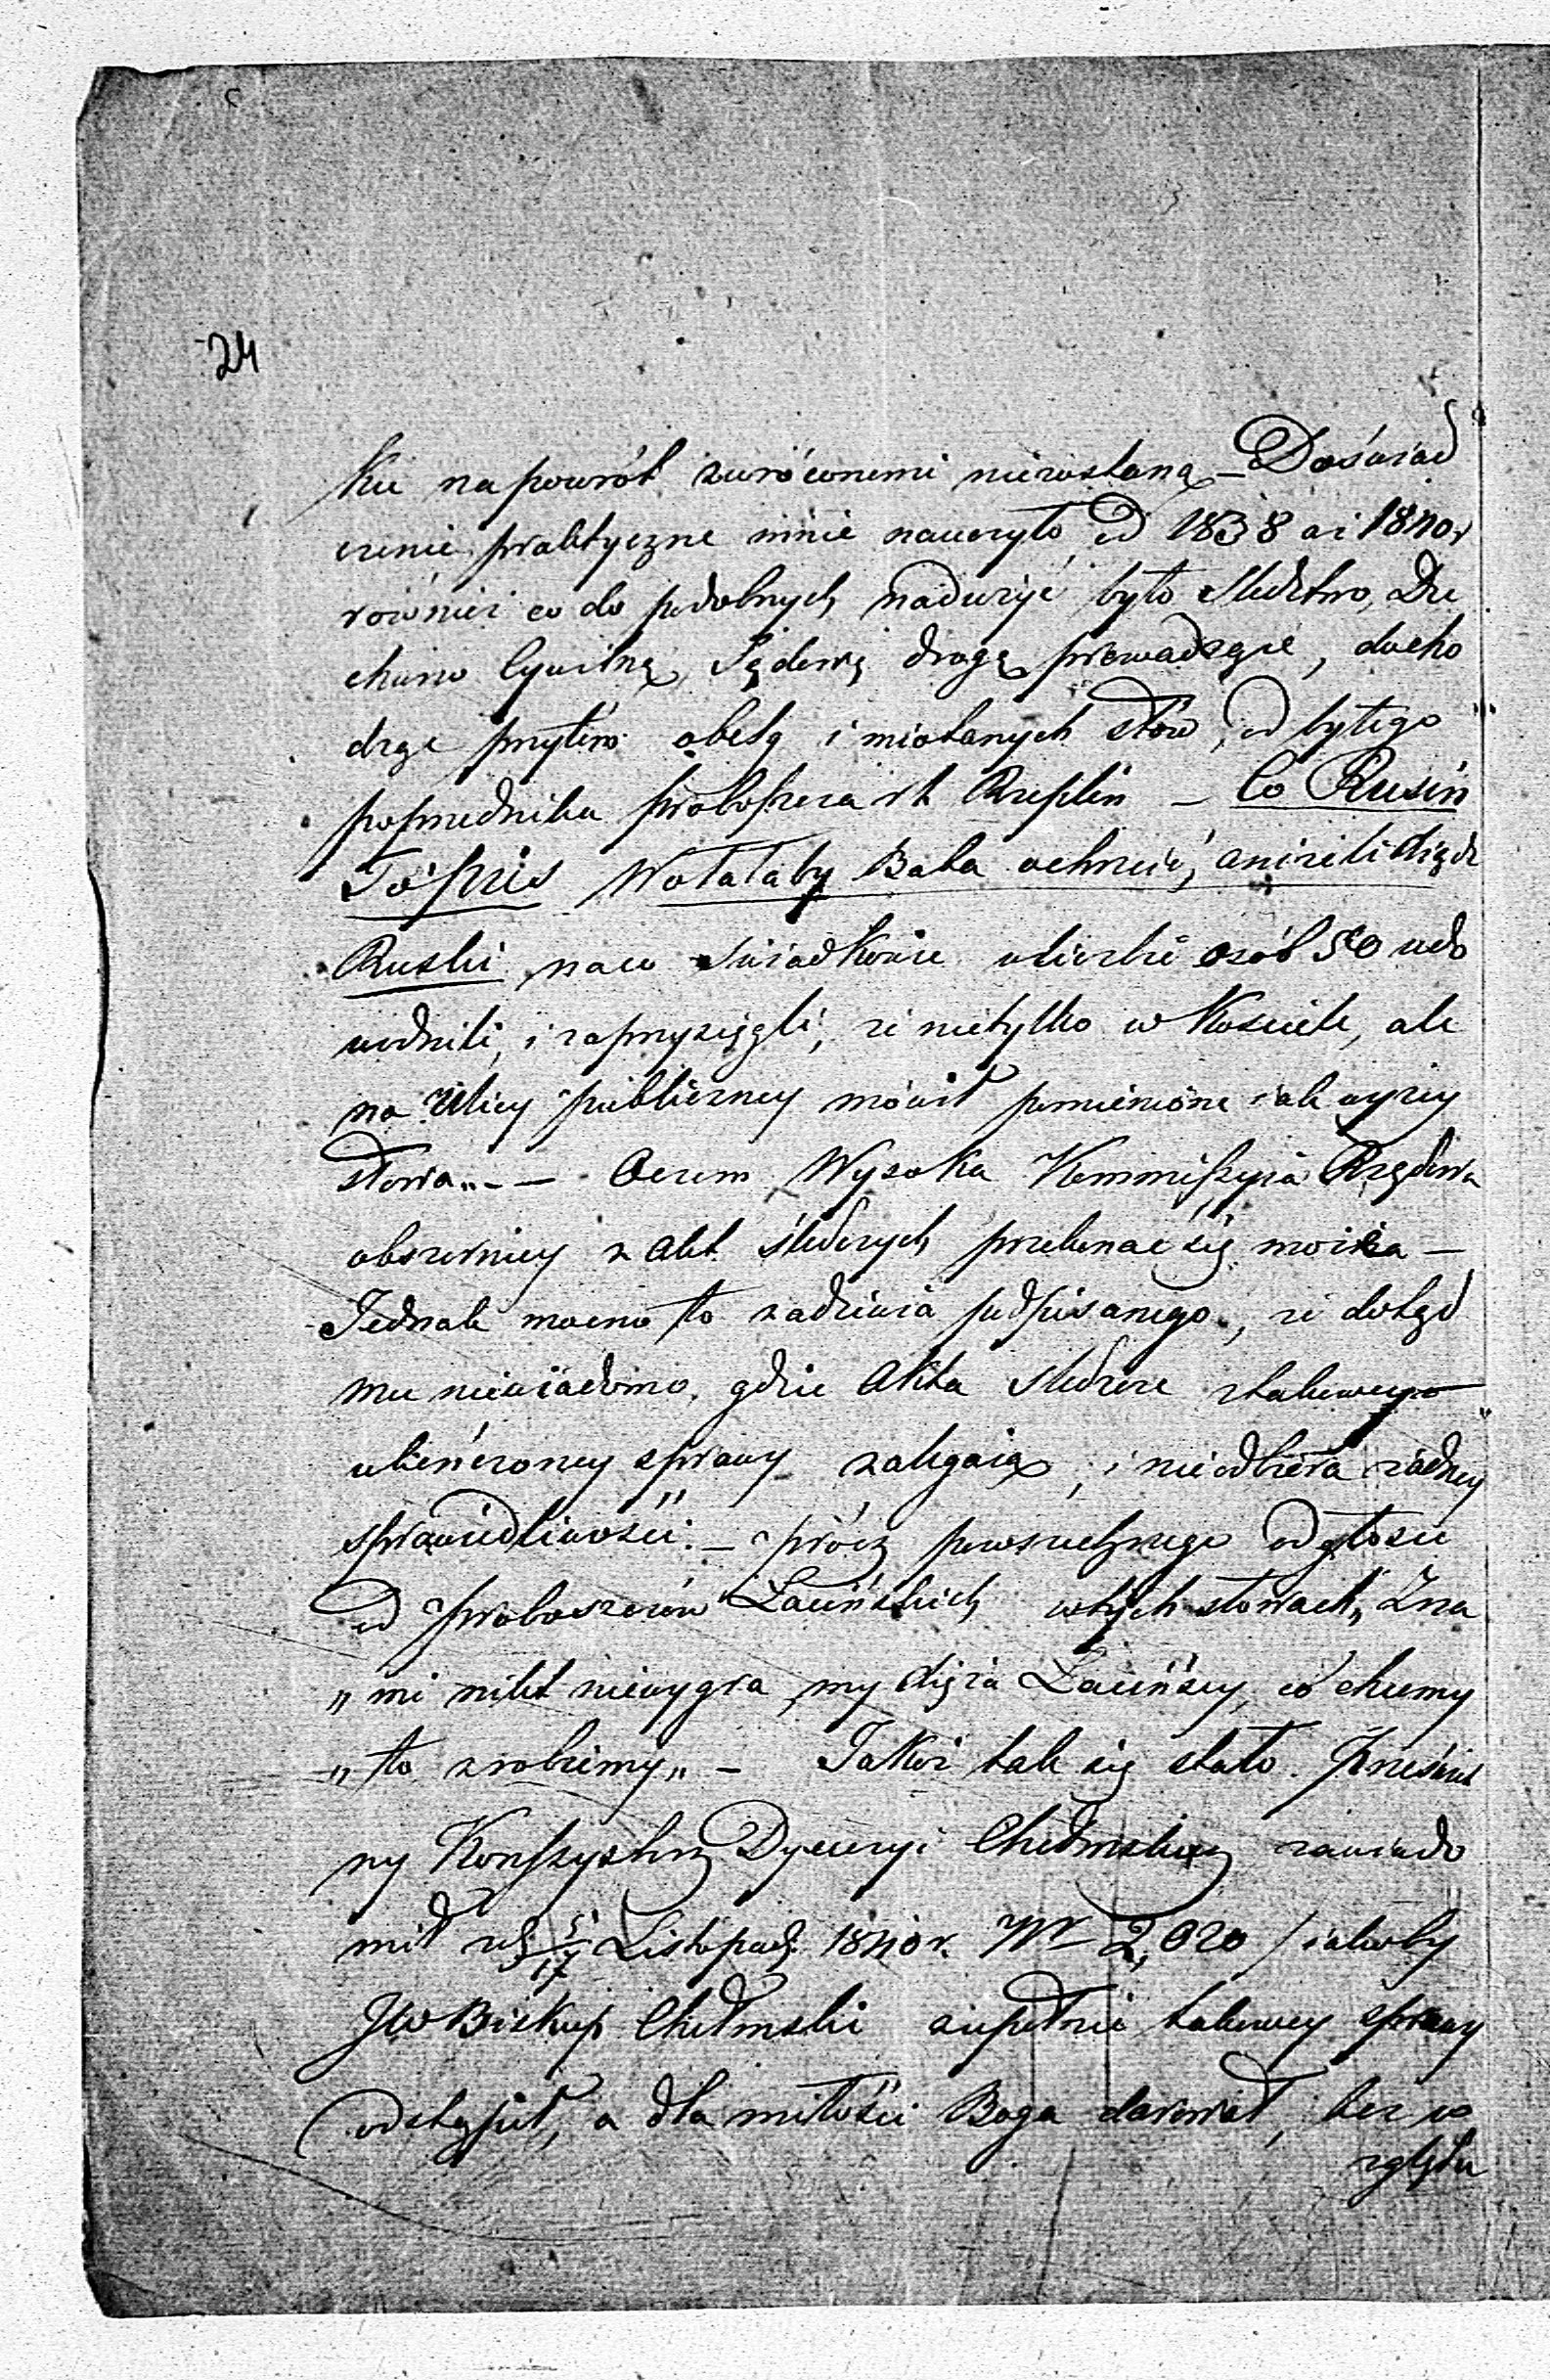 24
kie napowrót zwróconemi niezostaną – Doświad
czenie praktyczne mnie nauczyło, od 1838 aż 1840 r
również co do podobnych nadużyć było Śledztwo, Du
chowno Cywilną, Sądową drogą prowadzone, docho
dząc przytem obelg i miotanych słów, od byłego
poprzednika proboszcza rł. Rzeplin – Co Rusin
To pies Wolałaby Baba ochrzcić, aniżeli Xiądz
Ruski, na co Świadkowie w liczbie osób 50 udo
wodnili, i zaprzysięgli, że nietylko w Kościele, ale
na Ulicy publiczney mówił pomienione iak wyżey
słowa„ – – Oczem Wysoka Kommissyia Rządowa
obszerniey z Akt śledczych przekonać się może –
Jednak mocno to zadziwia podpisanego, że dotąd
mu niewiadomo, gdzie Akta Śledcze z takowey
ukończoney sprawy zalegaią, i nieodbiera żadney
sprawiedliwości. – prócz powszechnego odgłosu
od proboszczów Łacińskich w tych słowach, „Z na
„mi nikt niewygra, my Xięża Łacińscy, co chcemy
„to zrobiemy„ – Jakoż tak się stało. Przeświet
ny Konsystorz Dyecezyi Chełmskiey zawiado
mił zd 5/17 Listopada 1840 r. Nr 2,020 / iakoby
JW Biskup Chełmski zupełnie takowey sprawy
odstąpił, a dla miłości Boga darował, bez w
zględu